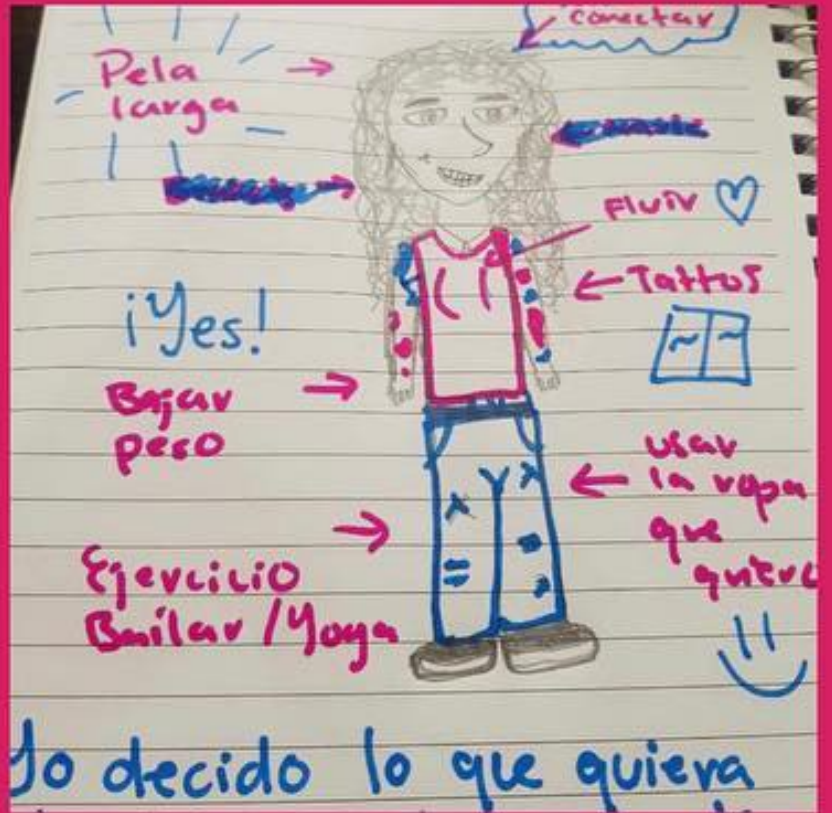 conectar
Pela
larga
Fluir
Tattos
¡Yes!
Bajar
peso
usar
la ropa
que
quiero
Ejercicio
Bailar / Yoga
Yo decido lo que quiera